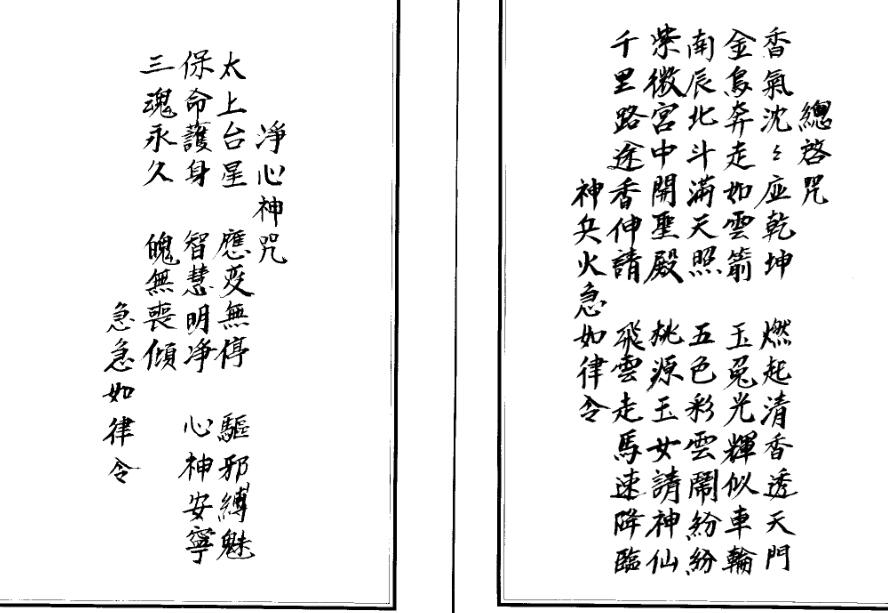 總啓咒
香氣沈〻应乾坤 燃起清香透天門
金烏奔走如雲箭 玉兔光輝似車輪
南辰北斗滿天照 五色彩雲鬧紛紛
紫微宮中開聖殿 桃源玉女請神仙
千里路途香伸請 飛雲走馬速降臨
神兵火急如律令
净心神咒
太上台星 應变無停 驅邪縛魅
保命護身 智慧明净 心神安寧
三魂永久 魄無喪傾
急急如律令